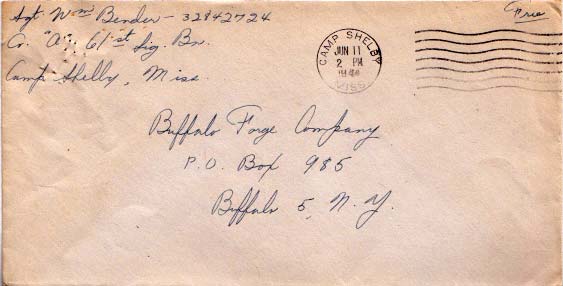 Sgt Wm Bender - 32842724
Co. "A", 61st Sig. Bn.
Camp Shelby, Miss.
CAMP SHELBY
JUN 11
2 PM
MISS.
Free
Buffalo Forge Company
P.O. Box 985
Buffalo 5, N.Y.